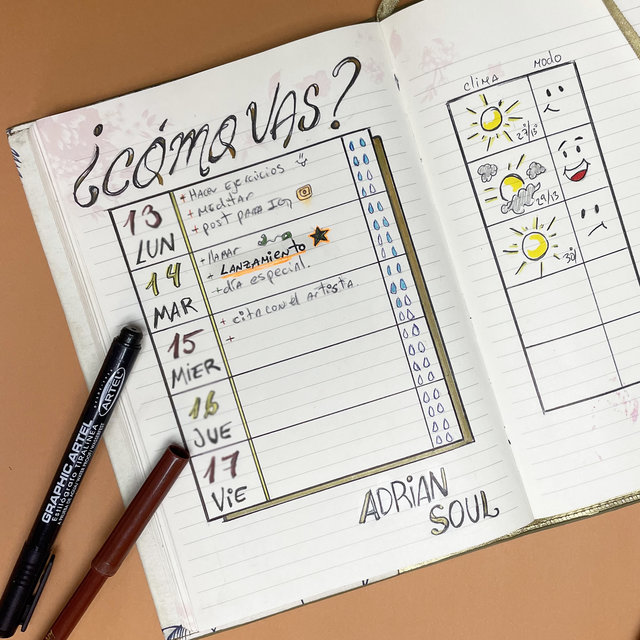 ¿CÓMO VAS?
13 LUN
+ HACER EJERCICIOS
+ MEDITAR
+ POST PARA IG
14 MAR
+ LLAMAR
+ LANZAMIENTO
+ DÍA ESPECIAL.
15 MIER
+ CITA CON EL ARTISTA
+
16 JUE
17 VIE
ADRIAN
SOUL
CLIMA MODO
29/13
30°
GRAPHIC ARTEL
Estilógrafo TIRALINEA
ARTEL